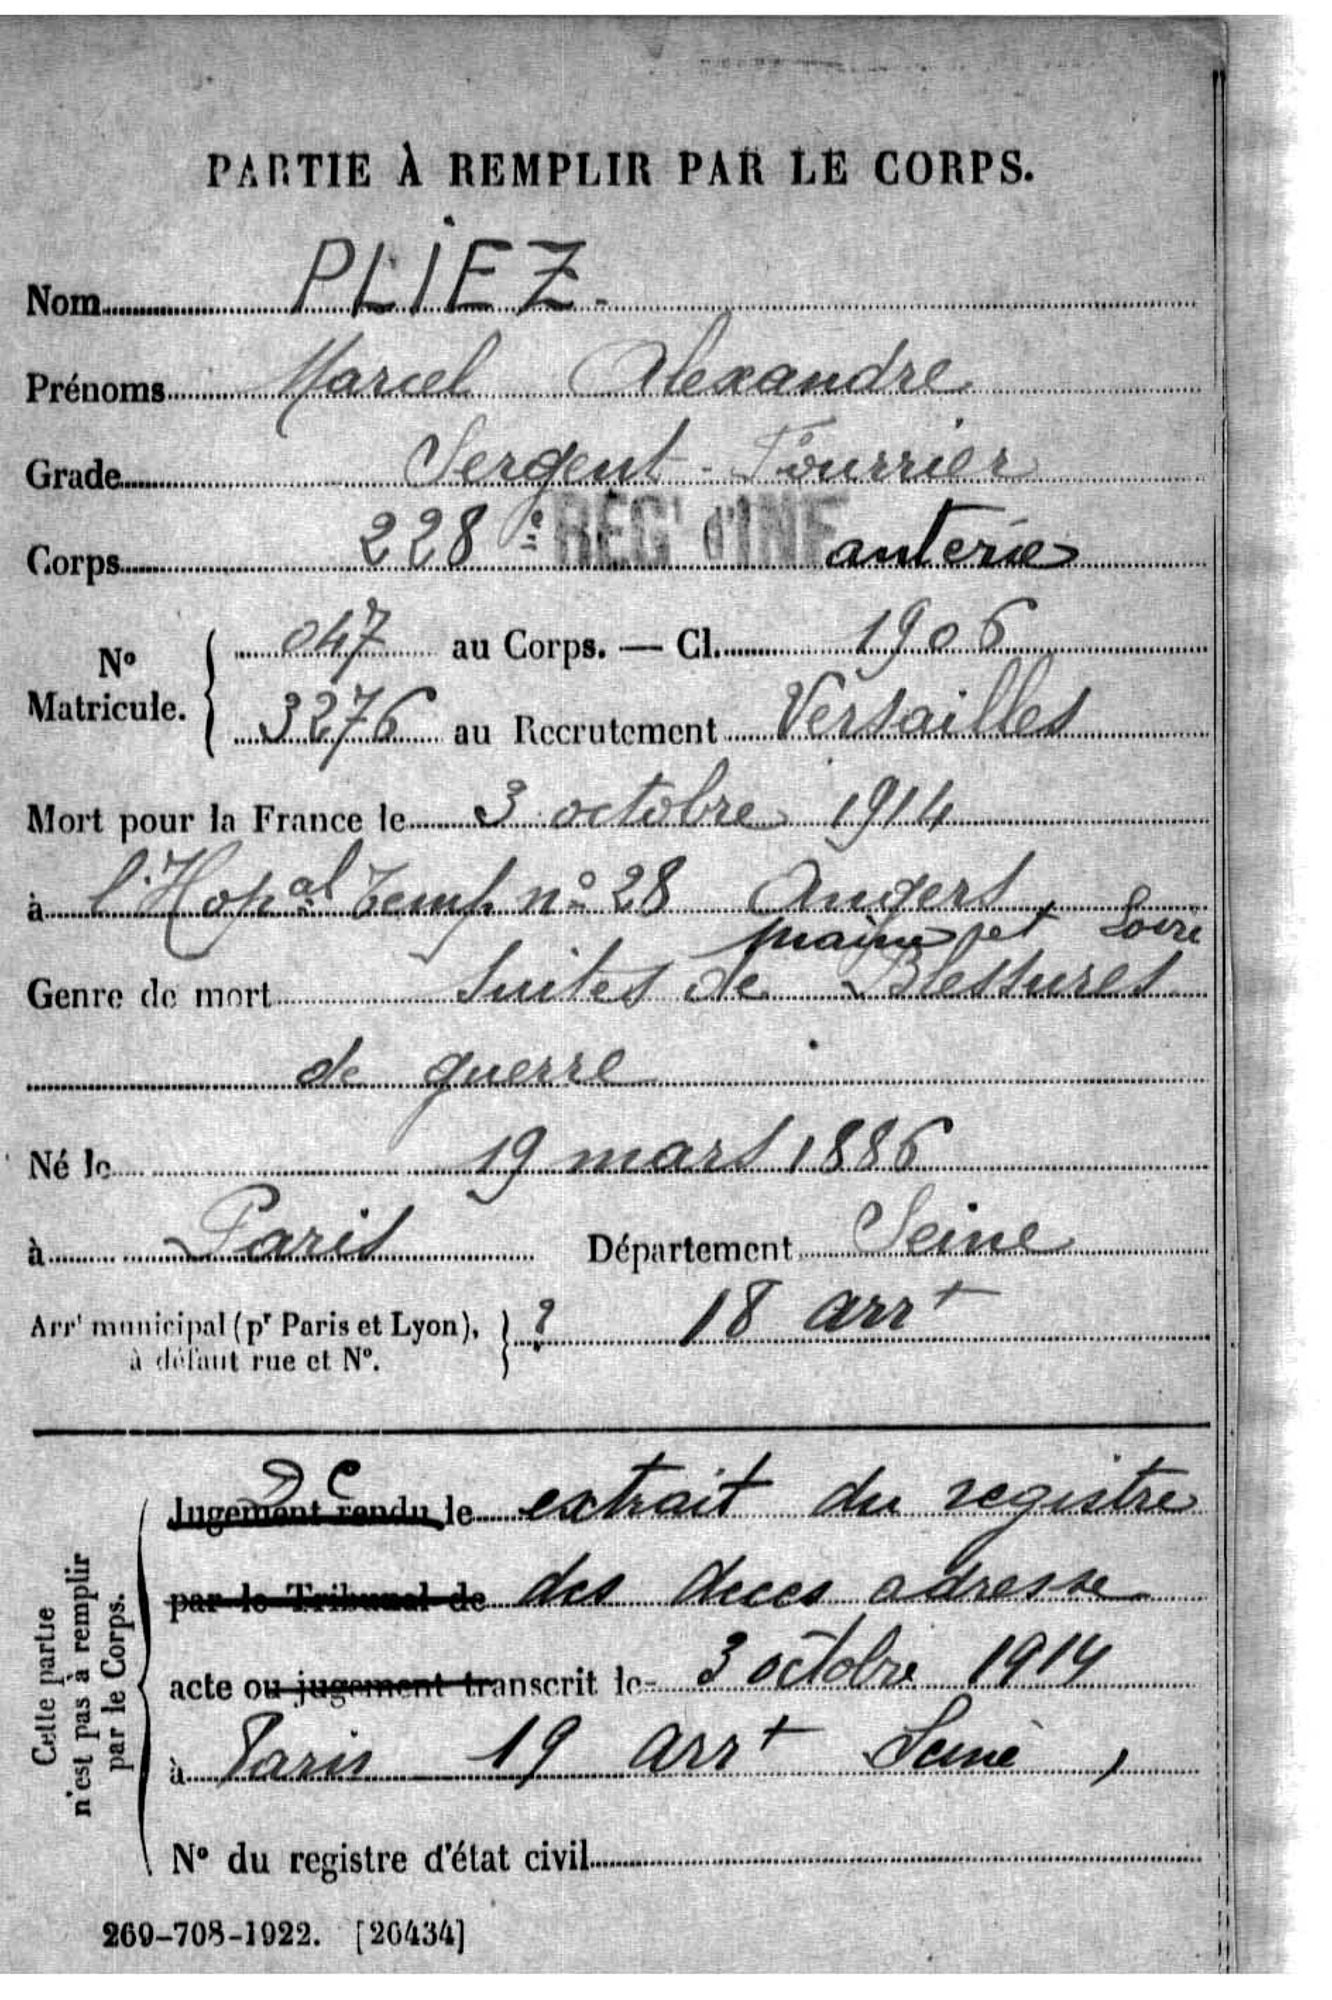 PARTIE À REMPLIR PAR LE CORPS.
Nom PLIEZ-
Prénoms Marcel Alexandre
Grade Sergent-Fourrier
Corps 228e RÉGt d'INFanterie
No Matricule. { 047 au Corps. — Cl. 1906
3276 au Recrutement Versailles
Mort pour la France le 3 octobre 1914
à l'Hopal Temp. no 28 Angers,
maine et Loire
Genre de mort Suites de Blessures
de guerre
Né le 19 mars 1886
à Paris Département Seine
Arrt municipal (pr Paris et Lyon), à défaut rue et No. } ? 18 arrt
Jugement rendu le extrait du registre
par le Tribunal de des deces adresse
acte ou jugement transcrit le 3 octobre 1914
à Paris 19 arrt Seine,
No du registre d'état civil
Cette partie n'est pas à remplir par le Corps.
269-708-1922. [26434]